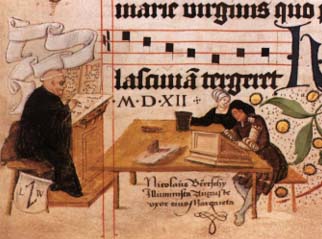 marie virginis quo p
lasciuiā tergeret
·M·D·XII·
L W
Nicolaus Bertschy
Illuminista Augus de
vxor eius Margareta